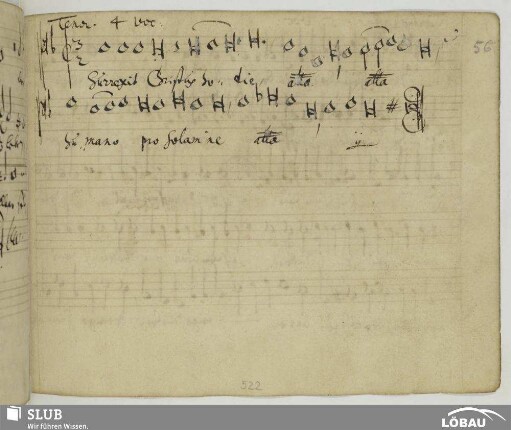 Tenor. 4 Voc.
56
Surrexit Christus ho: die, alla alla
Hu,mano pro solamine alla ij
522
SLUB
Wir führen Wissen.
LÖBAU